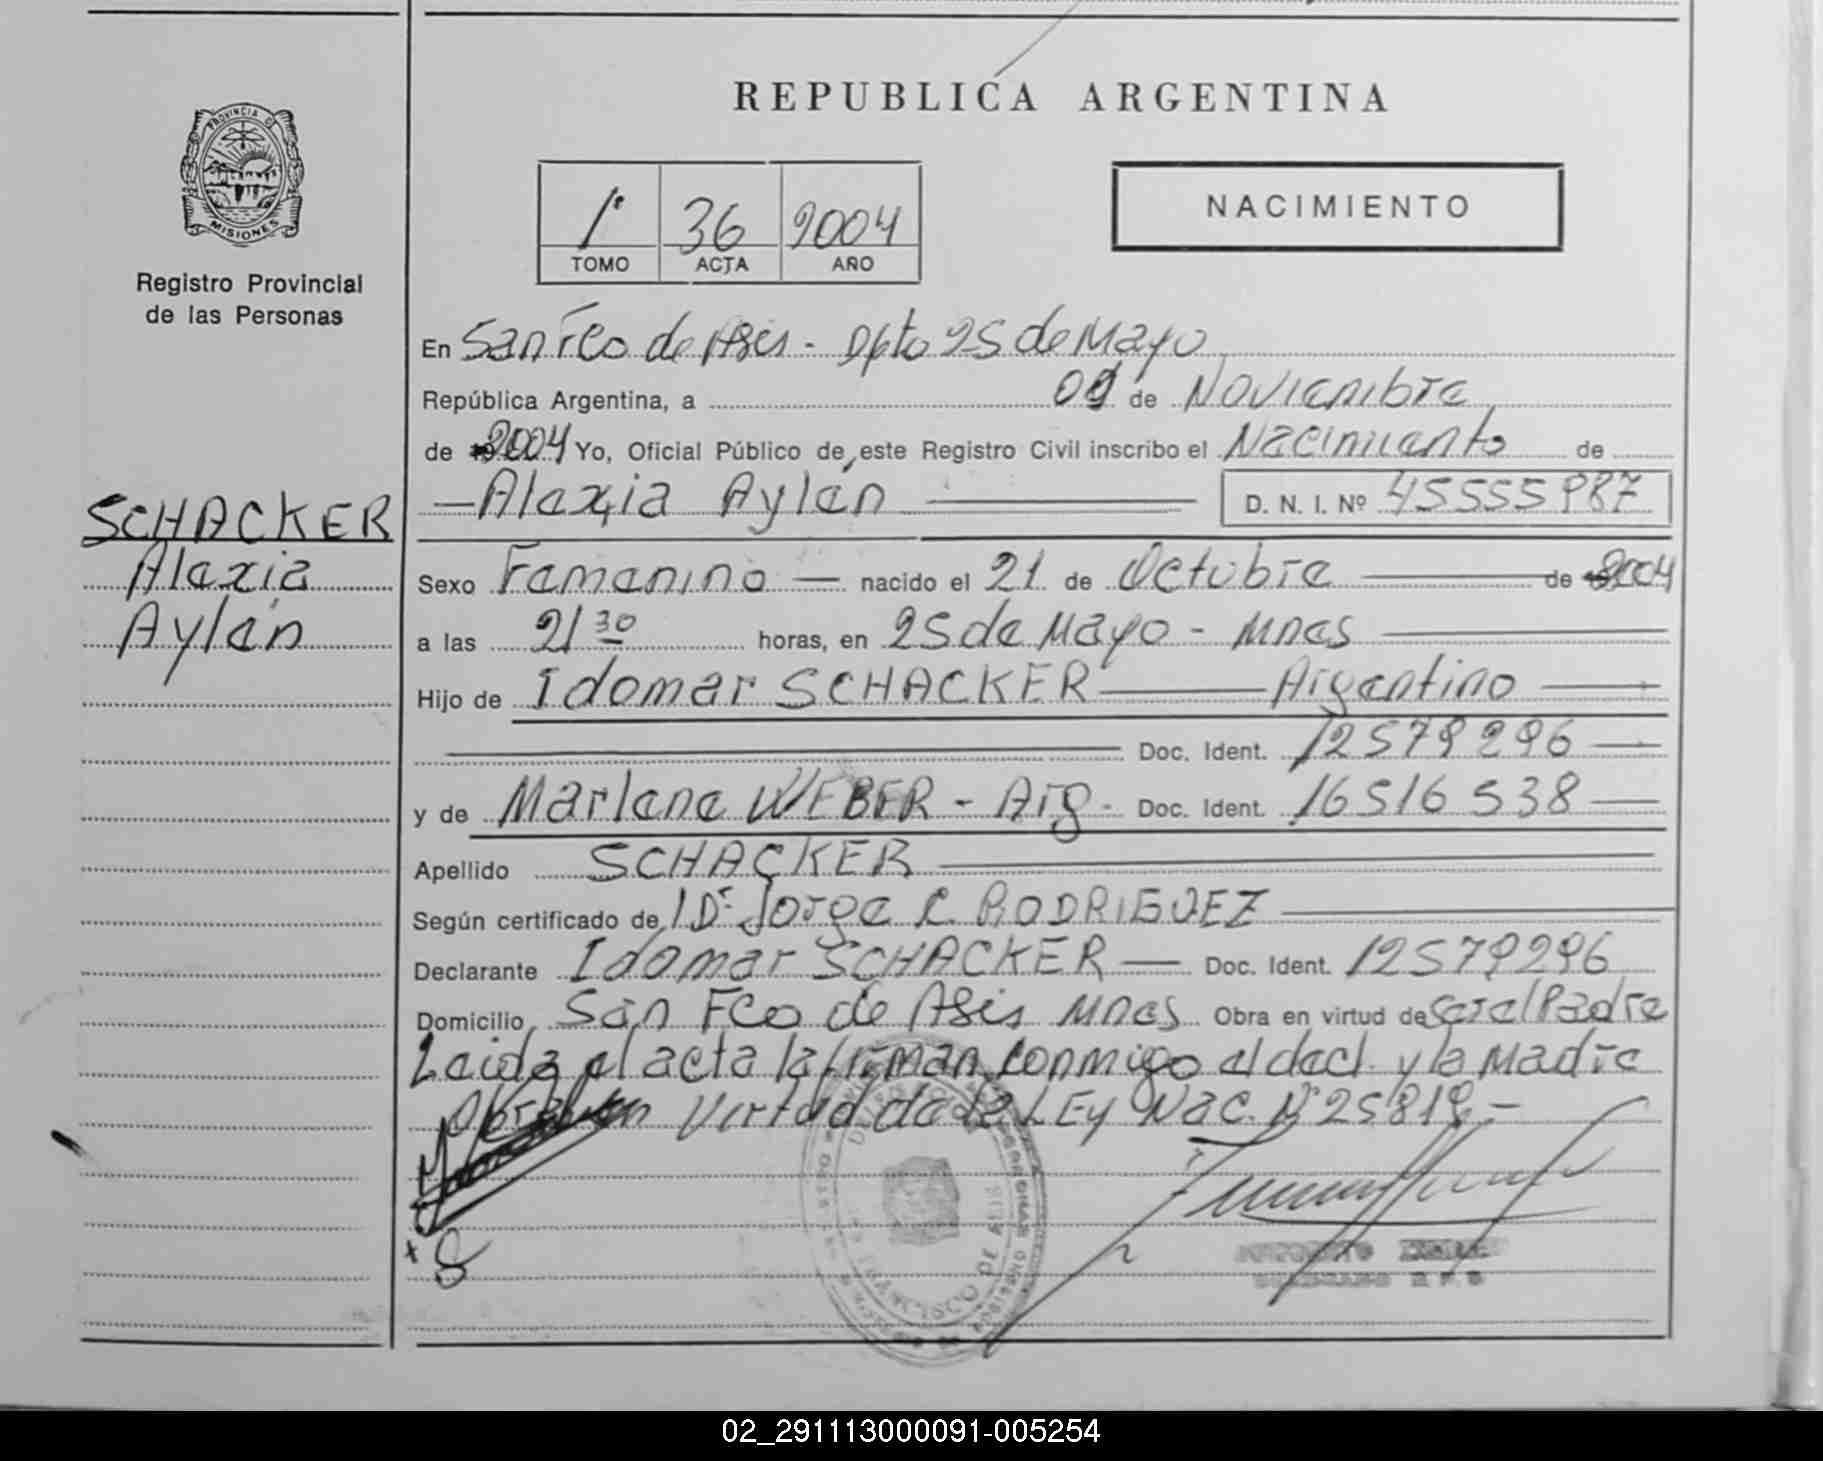 REPUBLICA ARGENTINA
PROVINCIA D
MISIONES
Registro Provincial
de las Personas
1º 36 2004
TOMO ACTA AÑO
NACIMIENTO
En San Fco de Asis - Dpto 25 de Mayo
República Argentina, a de Noviembre
de 2004 Yo, Oficial Público de este Registro Civil inscribo el Nacimiento de
Alexia Aylén D. N. I. Nº 45555987
SCHACKER
Alexia
Aylén
Sexo Femenino nacido el 21 de Octubre de 2004
a las 21 30 horas, en 25 de Mayo - Mnes
Hijo de Idomar SCHACKER Argentino
Doc. Ident. 12579296
y de Marlene WEBER - Arg - Doc. Ident. 16516538
Apellido SCHACKER
Según certificado de Dr Jorge R. RODRIGUEZ
Declarante Idomar SCHACKER Doc. Ident. 12579296
Domicilio San Fco de Asis Mnes Obra en virtud de ser el Padre
Leida el acta la firman conmigo el decl. y la Madre
en Virtud de la LEy Nac. Nº 25819.-
FRANCISCO DE ASIS
02_291113000091-005254